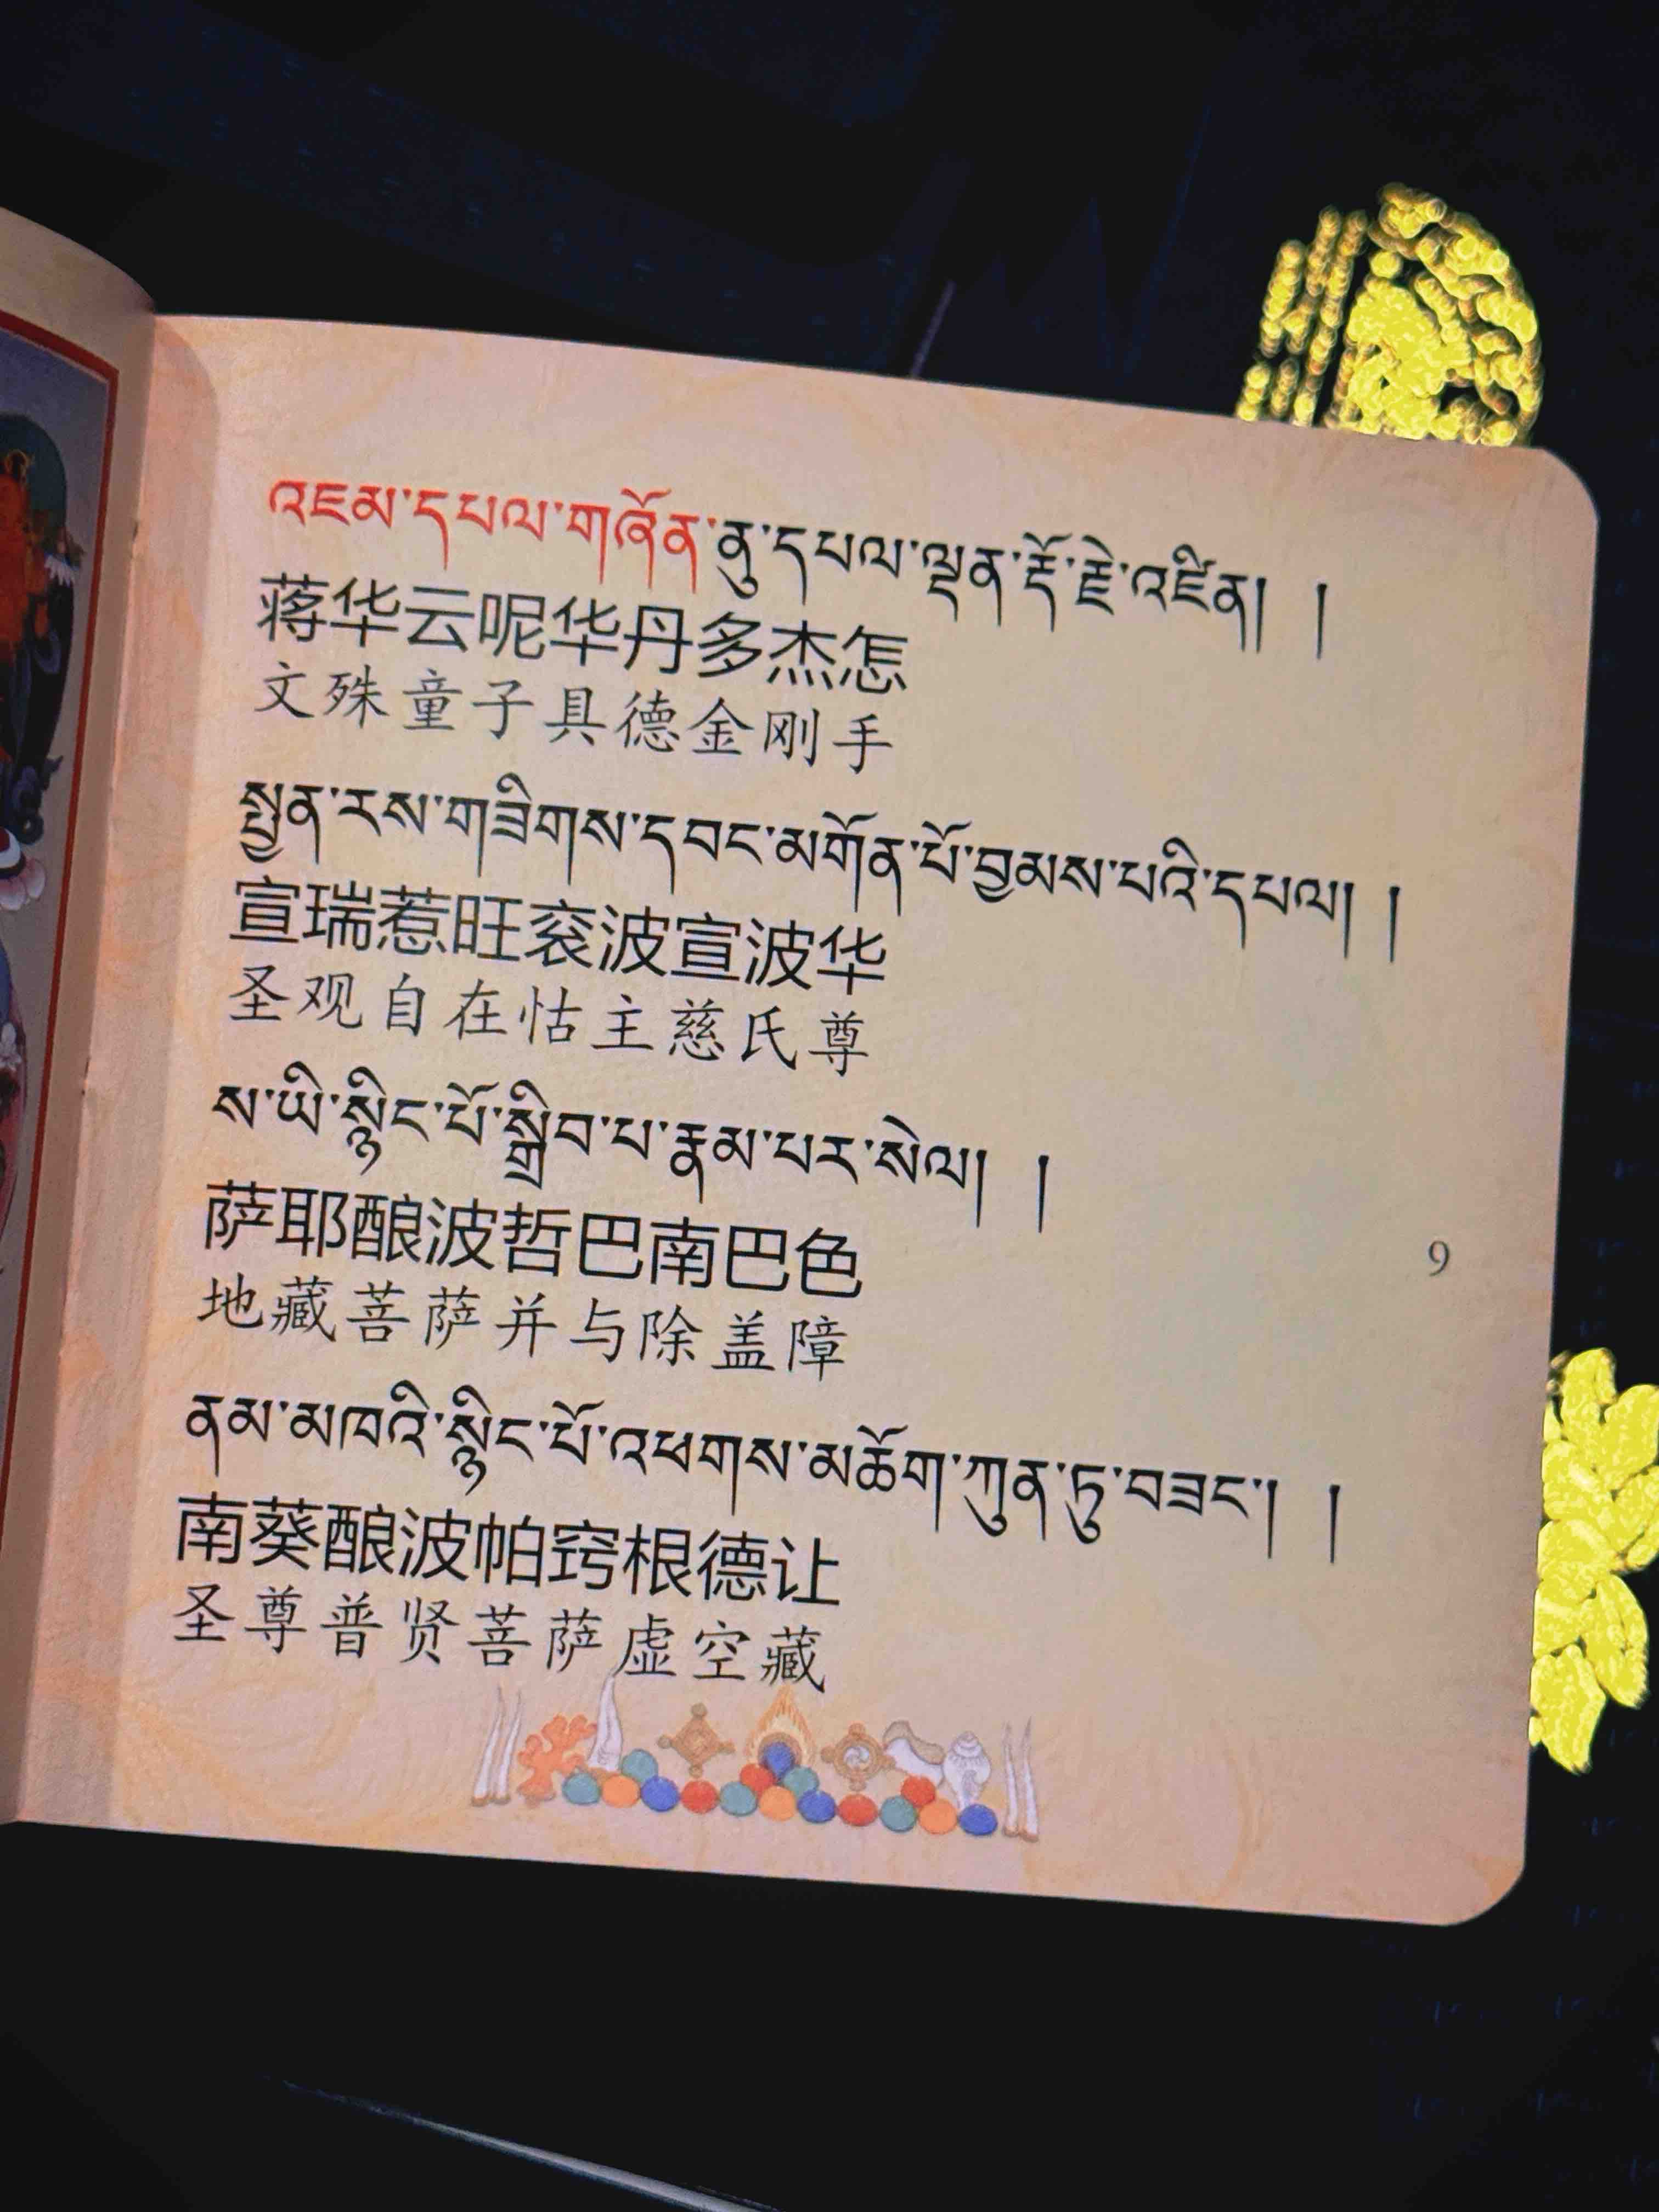 འཇམ་དཔལ་གཞོན་ནུ་དཔལ་ལྡན་རྡོ་རྗེ་འཛིན། །
蒋华云呢华丹多杰怎
文殊童子具德金刚手
སྤྱན་རས་གཟིགས་དབང་མགོན་པོ་བྱམས་པའི་དཔལ། །
宣瑞惹旺衮波宣波华
圣观自在怙主慈氏尊
ས་ཡི་སྙིང་པོ་སྒྲིབ་པ་རྣམ་པར་སེལ། །
萨耶酿波哲巴南巴色
地藏菩萨并与除盖障
9
ནམ་མཁའི་སྙིང་པོ་འཕགས་མཆོག་ཀུན་ཏུ་བཟང་། །
南葵酿波帕窍根德让
圣尊普贤菩萨虚空藏